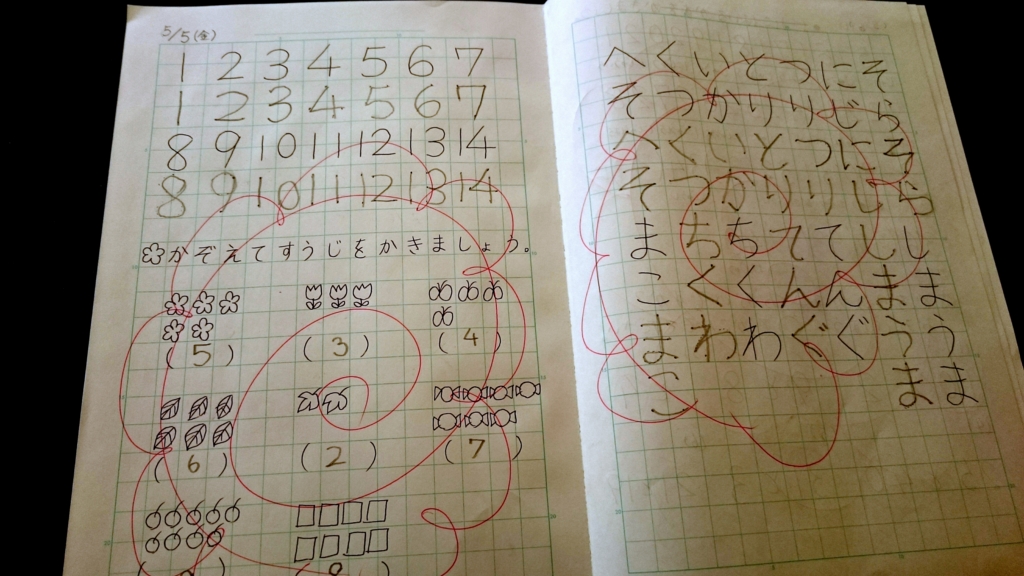 5/5(金)
1 2 3 4 5 6 7
1 2 3 4 5 6 7
8 9 10 11 12 13 14
8 9 10 11 12 13 14
かぞえてすうじをかきましょう。
(5) (3) (4)
(6) (2) (7)
そらそらしまうま
にじにじしまうま
つりつりてんぐ
とりとりてんぐ
いかいかちくわ
くつくつちくわ
へそへそまこまこ